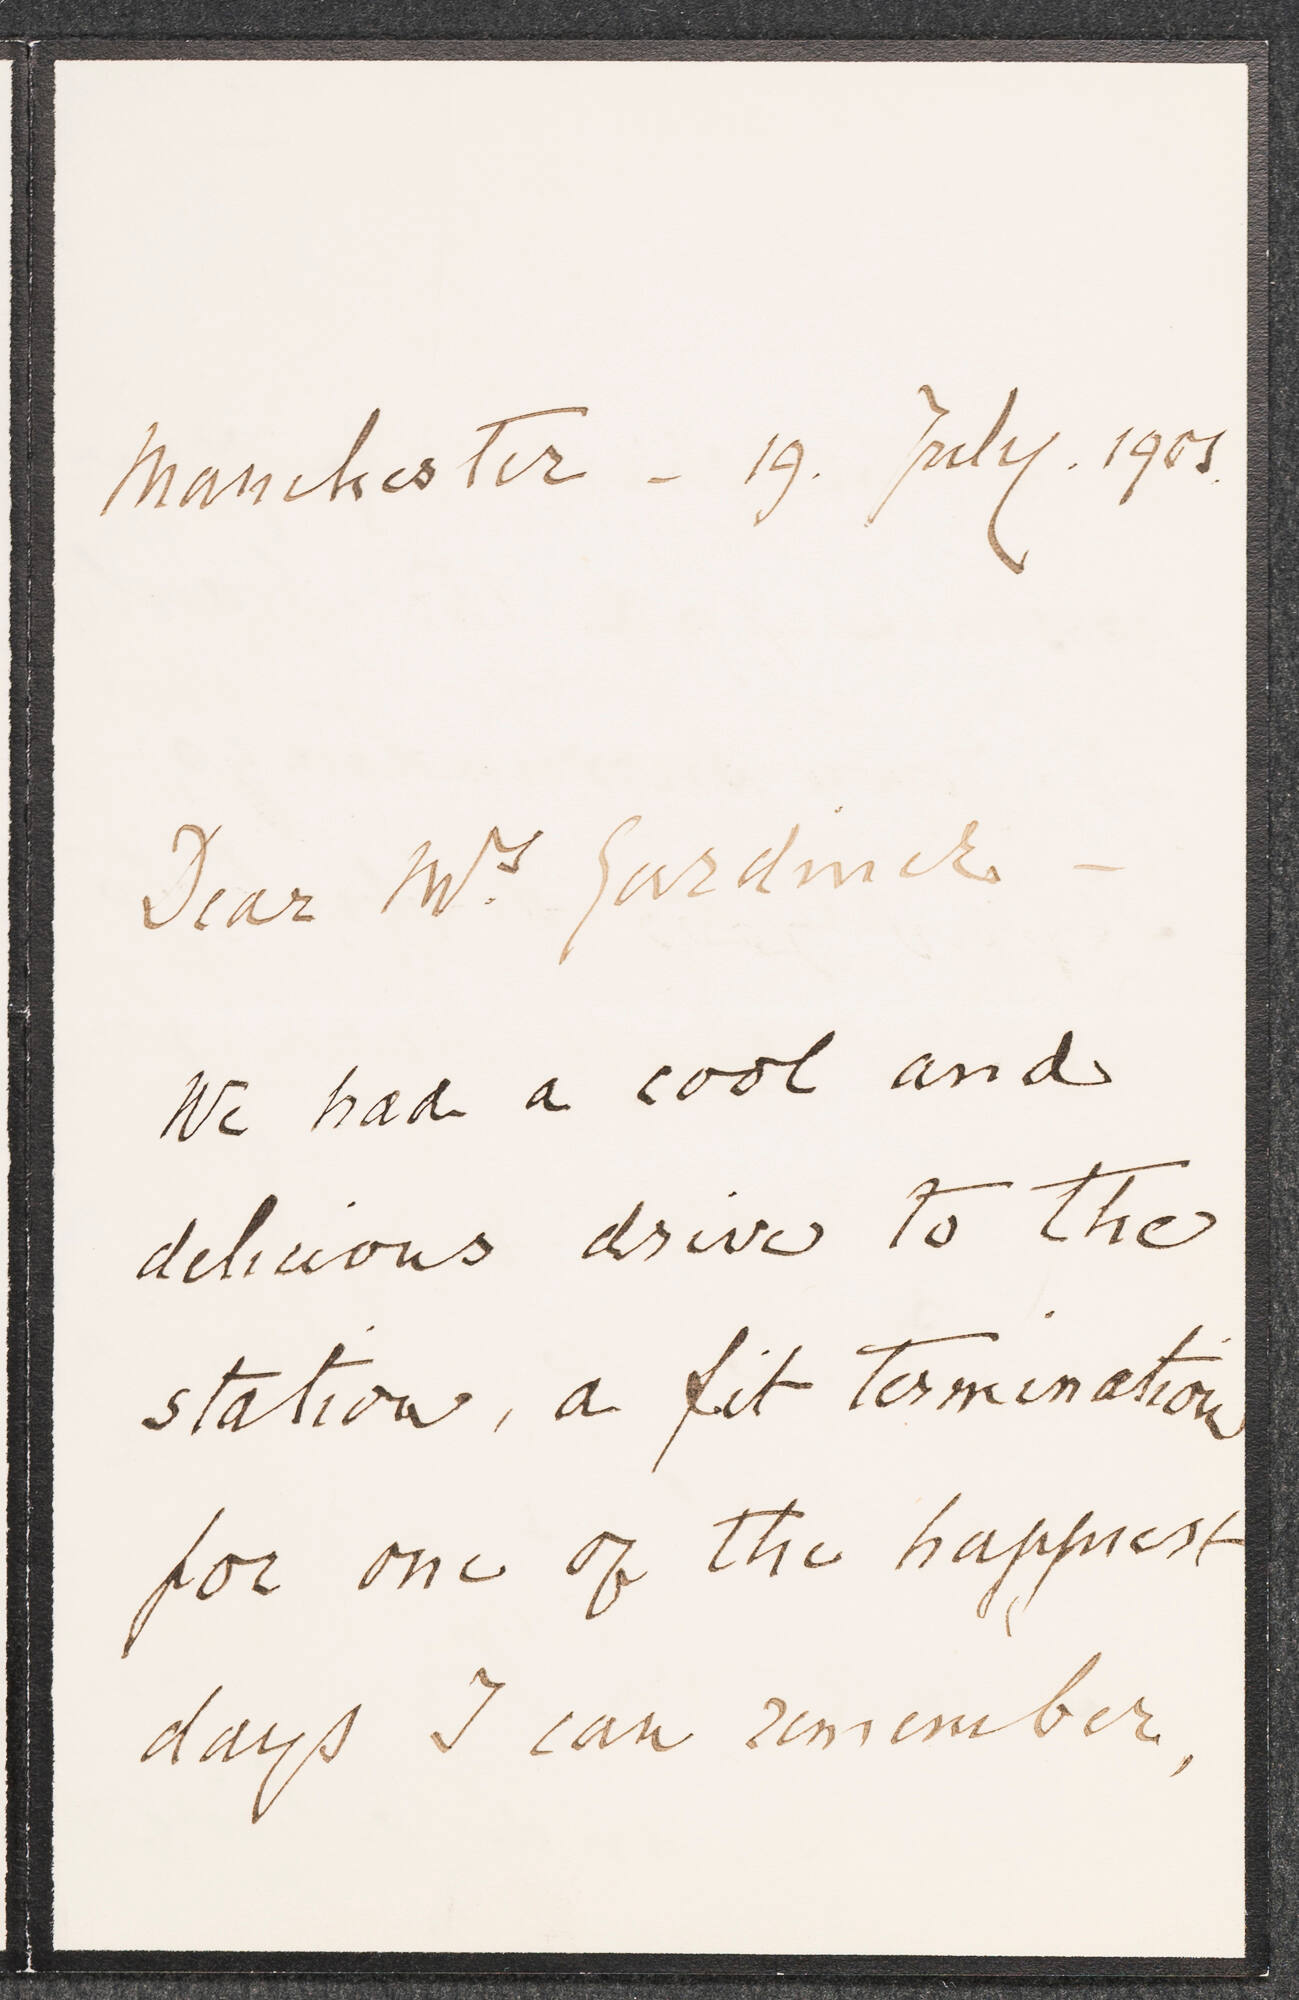 Manchester - 19. July. 1901.
Dear Mrs. Gardner -
We had a cool and
delicious drive to the
station, a fit termination
for one of the happiest
days I can remember,